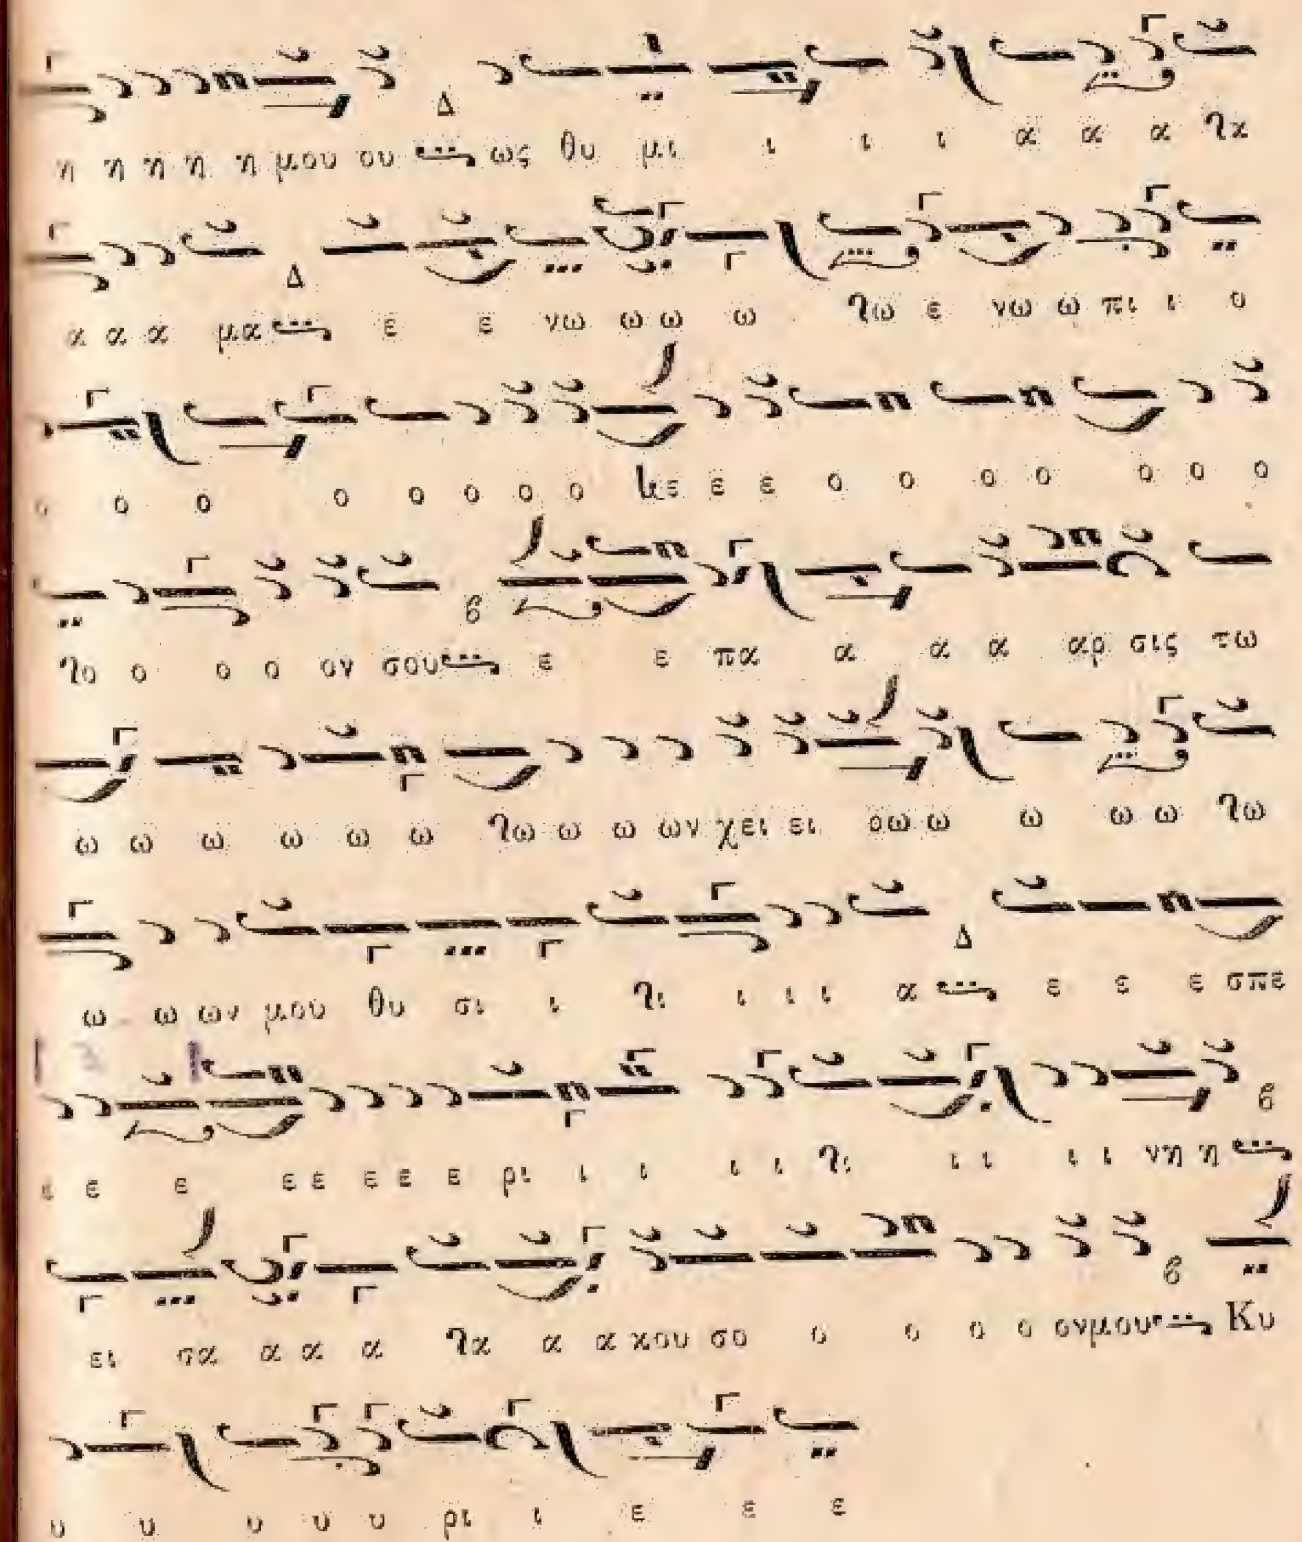 Δ
η η η η η μου ου ως θυ μι ι ι ι α α α λα
Δ
α α α μα ε ε νω ω ω ω λω ε νω ω πι ι ο
ο ο ο ο ο ο ο ο λε ε ε ο ο ο ο ο ο ο
β
λο ο ο ο ον σου ε ε πα α α α αρ σις τω
ω ω ω ω ω ω λω ω ω ων χει ει ρω ω ω ω ω λω
Δ
ω ω ων μου θυ σι ι λι ι ι ι α ε ε ε σπε
β
ε ε ε ε ε ε ε ε ρι ι ι ι ι λι ι ι ι ι νη η
β
ει σα α α α λα α α κου σο ο ο ο ο ον μου Κυ
υ υ υ υ υ ρι ι ε ε ε